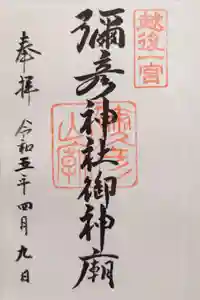 越後一宮
彌彦神社御神廟
奉拝 令和五年四月九日